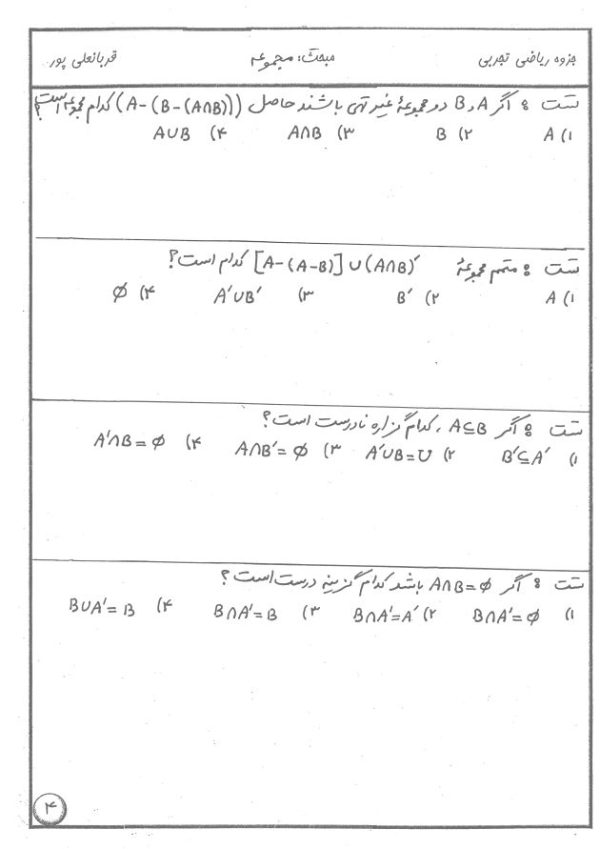 جزوه ریاضی تجربی مبحث: مجموعه قربانعلی پور
تست : اگر A و B دو مجموعهٔ غیر تهی باشند حاصل (A-(B-(A∩B))) کدام مجموعه است؟
۱) A ۲) B ۳) A∩B ۴) A∪B
تست : متمم مجموعهٔ [A-(A-B)]∪(A∩B)′ کدام است؟
۱) A ۲) B′ ۳) A′∪B′ ۴) ∅
تست : اگر A⊆B ، کدام گزاره نادرست است؟
۱) B′⊆A′ ۲) A′∪B=U ۳) A∩B′=∅ ۴) A′∩B=∅
تست : اگر A∩B=∅ باشد کدام گزینه درست است؟
۱) B∩A′=∅ ۲) B∩A′=A′ ۳) B∩A′=B ۴) B∪A′=B
۴